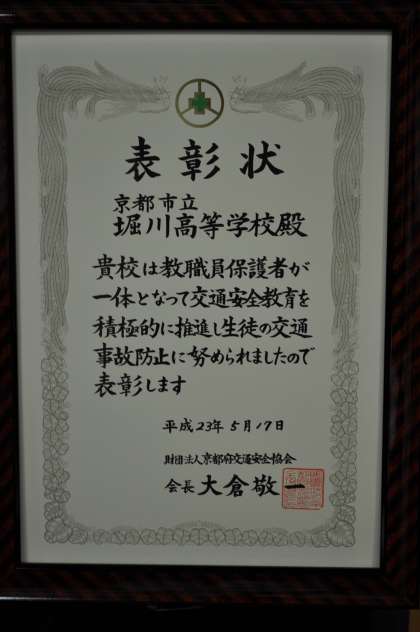 表彰状
京都市立
堀川高等学校殿
貴校は教職員保護者が
一体となって交通安全教育を
積極的に推進し生徒の交通
事故防止に努められましたので
表彰します
平成23年5月17日
財団法人京都府交通安全協会
会長 大倉敬一